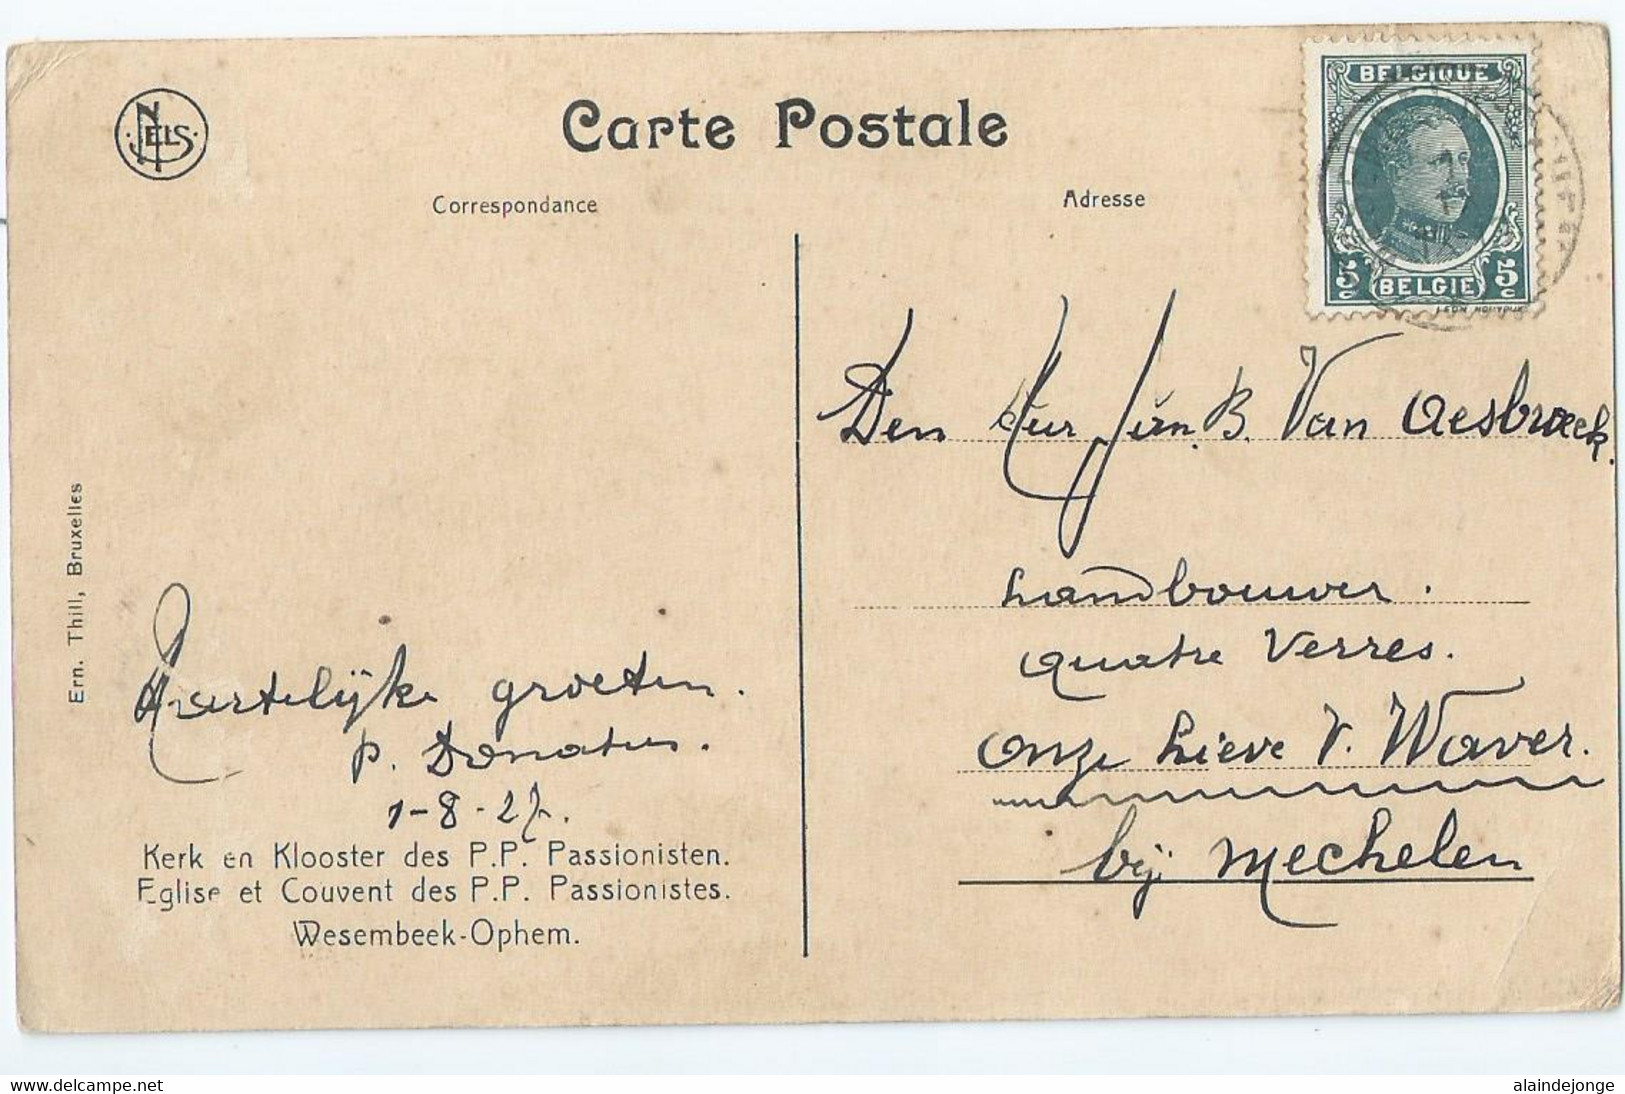 NELS
Carte Postale
Correspondance
Adresse
BELGIQUE
5c BELGIE 5c
Den Heer Jan. B. Van Aesbroeck.
Landbouwer.
Quatre Verres.
Onze Lieve V. Waver.
bij Mechelen
Ern. Thill, Bruxelles
Hartelijke groeten.
P. Donatus.
1-8-27.
Kerk en Klooster des P.P. Passionisten.
Eglise et Couvent des P.P. Passionistes.
Wesembeek-Ophem.
www.delcampe.net
alaindejonge